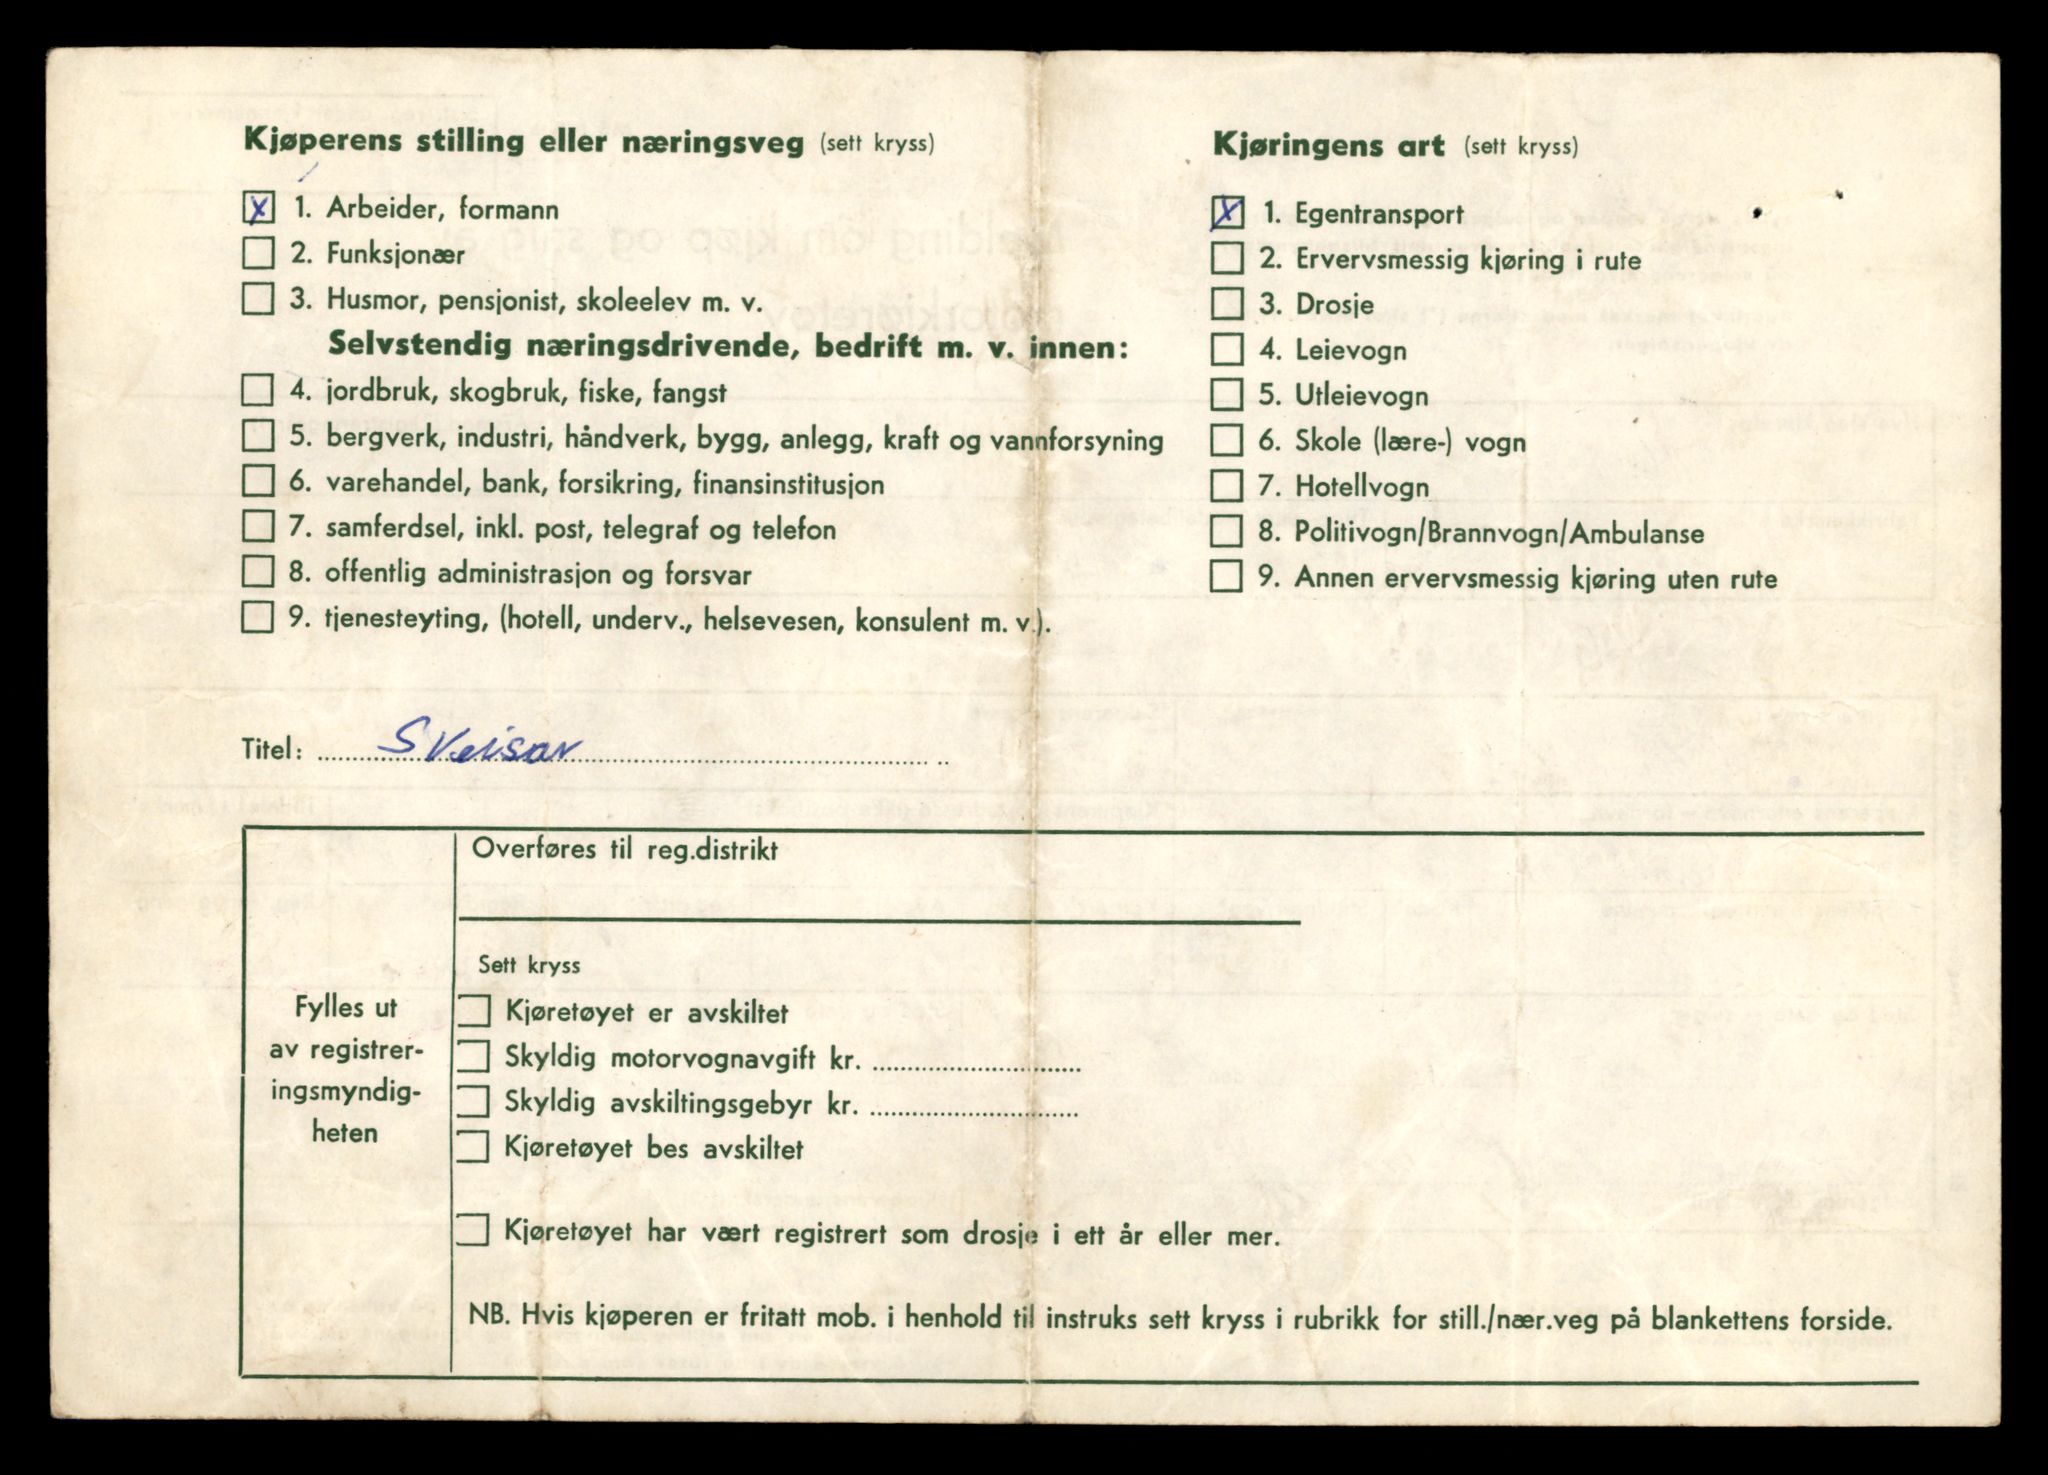 Kjøperens stilling eller næringsveg (sett kryss)
X 1. Arbeider, formann
2. Funksjonær
3. Husmor, pensjonist, skoleelev m. v.
Selvstendig næringsdrivende, bedrift m. v. innen:
4. jordbruk, skogbruk, fiske, fangst
5. bergverk, industri, håndverk, bygg, anlegg, kraft og vannforsyning
6. varehandel, bank, forsikring, finansinstitusjon
7. samferdsel, inkl. post, telegraf og telefon
8. offentlig administrasjon og forsvar
9. tjenesteyting, (hotell, underv., helsevesen, konsulent m. v.).
Kjøringens art (sett kryss)
X 1. Egentransport
2. Ervervsmessig kjøring i rute
3. Drosje
4. Leievogn
5. Utleievogn
6. Skole (lære-) vogn
7. Hotellvogn
8. Politivogn/Brannvogn/Ambulanse
9. Annen ervervsmessig kjøring uten rute
Titel: Sveisar
Fylles ut
av registrer-
ingsmyndig-
heten
Overføres til reg.distrikt
Sett kryss
Kjøretøyet er avskiltet
Skyldig motorvognavgift kr.
Skyldig avskiltingsgebyr kr.
Kjøretøyet bes avskiltet
Kjøretøyet har vært registrert som drosje i ett år eller mer.
NB. Hvis kjøperen er fritatt mob. i henhold til instruks sett kryss i rubrikk for still./nær.veg på blankettens forside.